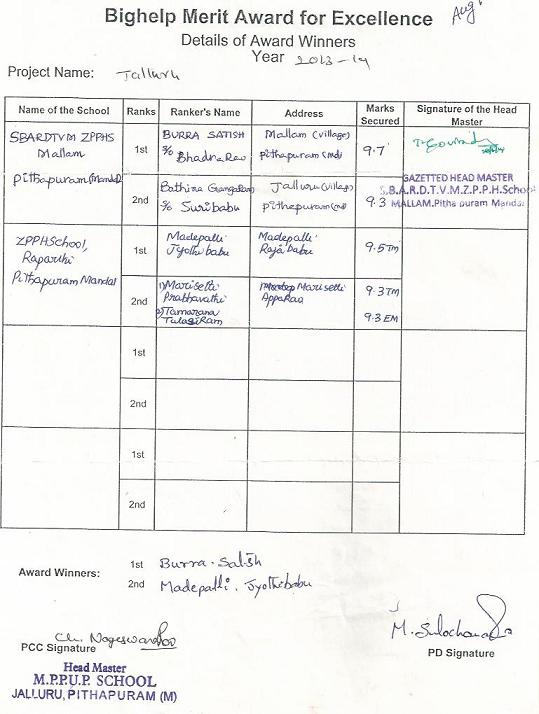 Bighelp Merit Award for Excellence
Aug
Details of Award Winners
Year 2013-14
Project Name: Jalluru
Name of the School Ranks Ranker's Name Address Marks Secured Signature of the Head Master
SBARDTVM ZPPHS
Mallam
Pithapuram (Mandal)
1st
BURRA SATISH
S/o Bhadra Rao
Mallam (village)
pithapuram (md)
9.7
GAZETTED HEAD MASTER
S.B.A.R.D.T.V.M.Z.P.P.H.School
MALLAM, Pithapuram Mandal
2nd
Bathina Gangaram
S/o Suribabu
Jalluru (village)
pithapuram (md)
9.3
ZPPHSchool,
Raparthi
Pithapuram Mandal
1st
Madepalli
Jyothibabu
Madepalli
Rajababu
9.5 TM
2nd
1) Marisetti
Prabhavathi
2) Tamarana
Tulasi Ram
Marisetti
AppaRao
9.3 TM
9.3 EM
1st
2nd
1st
2nd
Award Winners:
1st Burra. Satish
2nd Madepalli. Jyothibabu
Ch. Nageswara Rao
PCC Signature
Head Master
M.P.P.U.P. SCHOOL
JALLURU, PITHAPURAM (M)
M. Sulochana
PD Signature